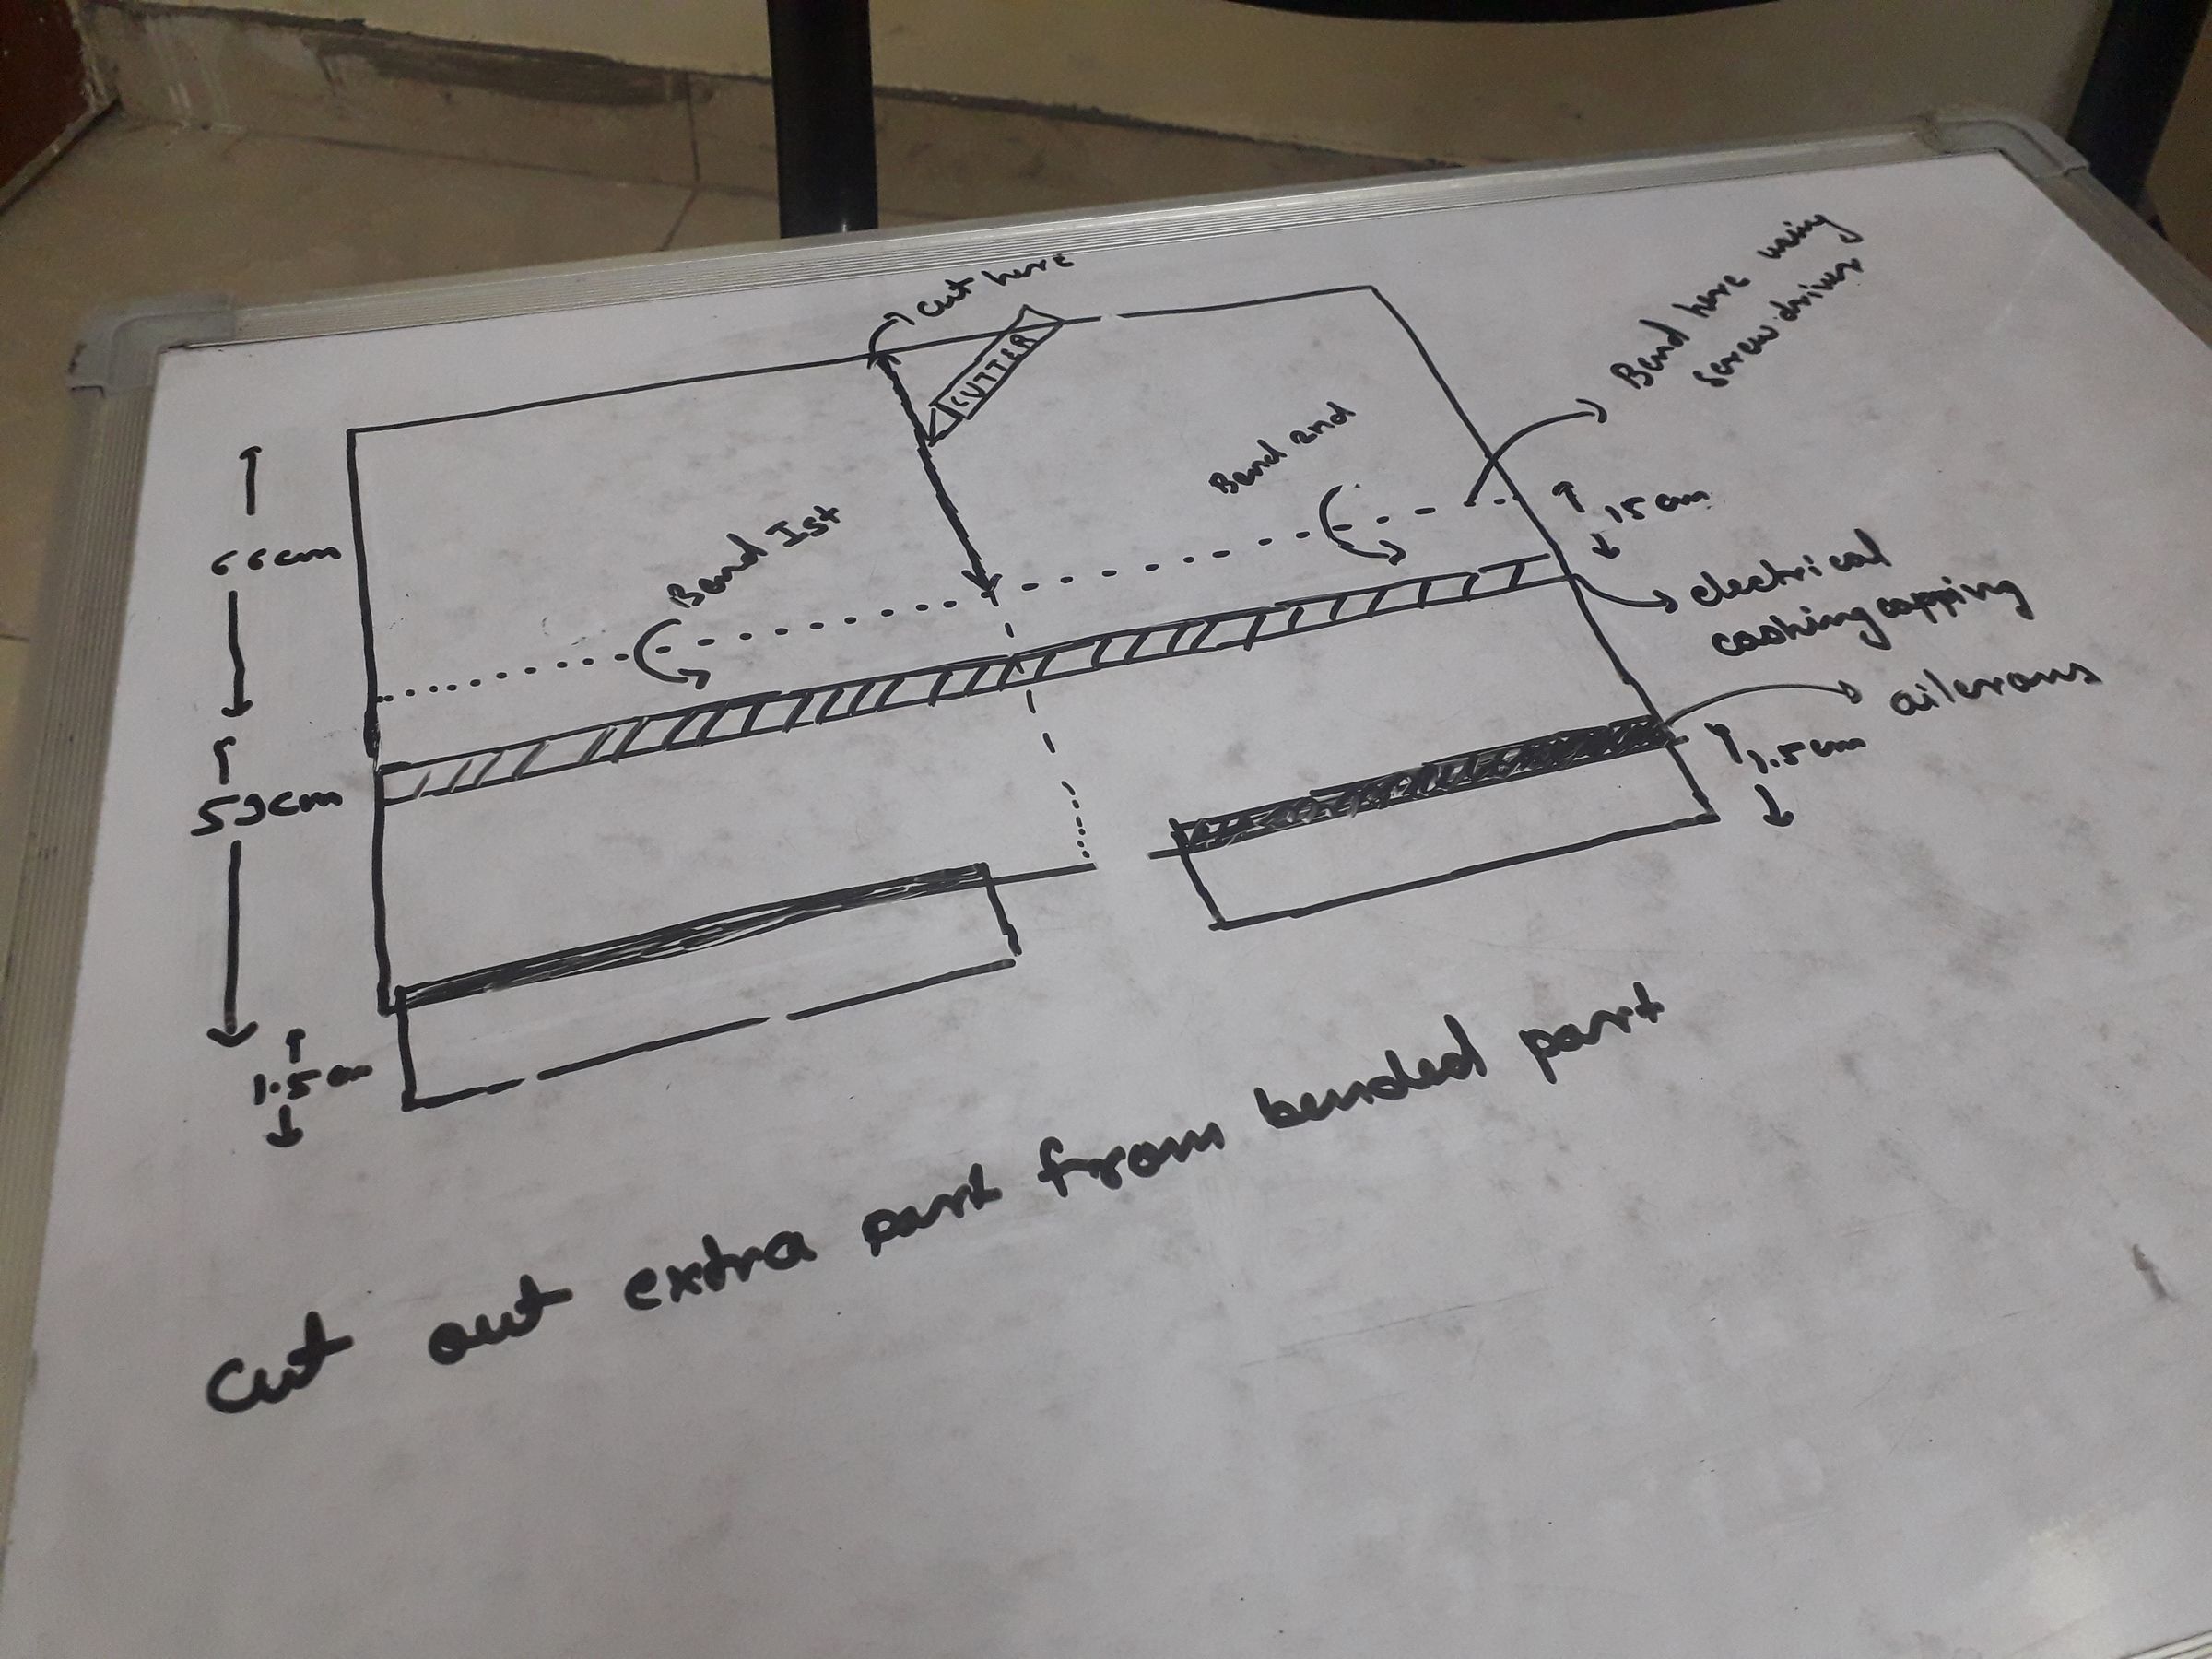 cut here
CUTTER
Bend here using
screw driver
Bend 2nd
Bend Ist
66cm
15cm
electrical
cashing capping
ailerons
1.5cm
53cm
1.5cm
Cut out extra part from bended part